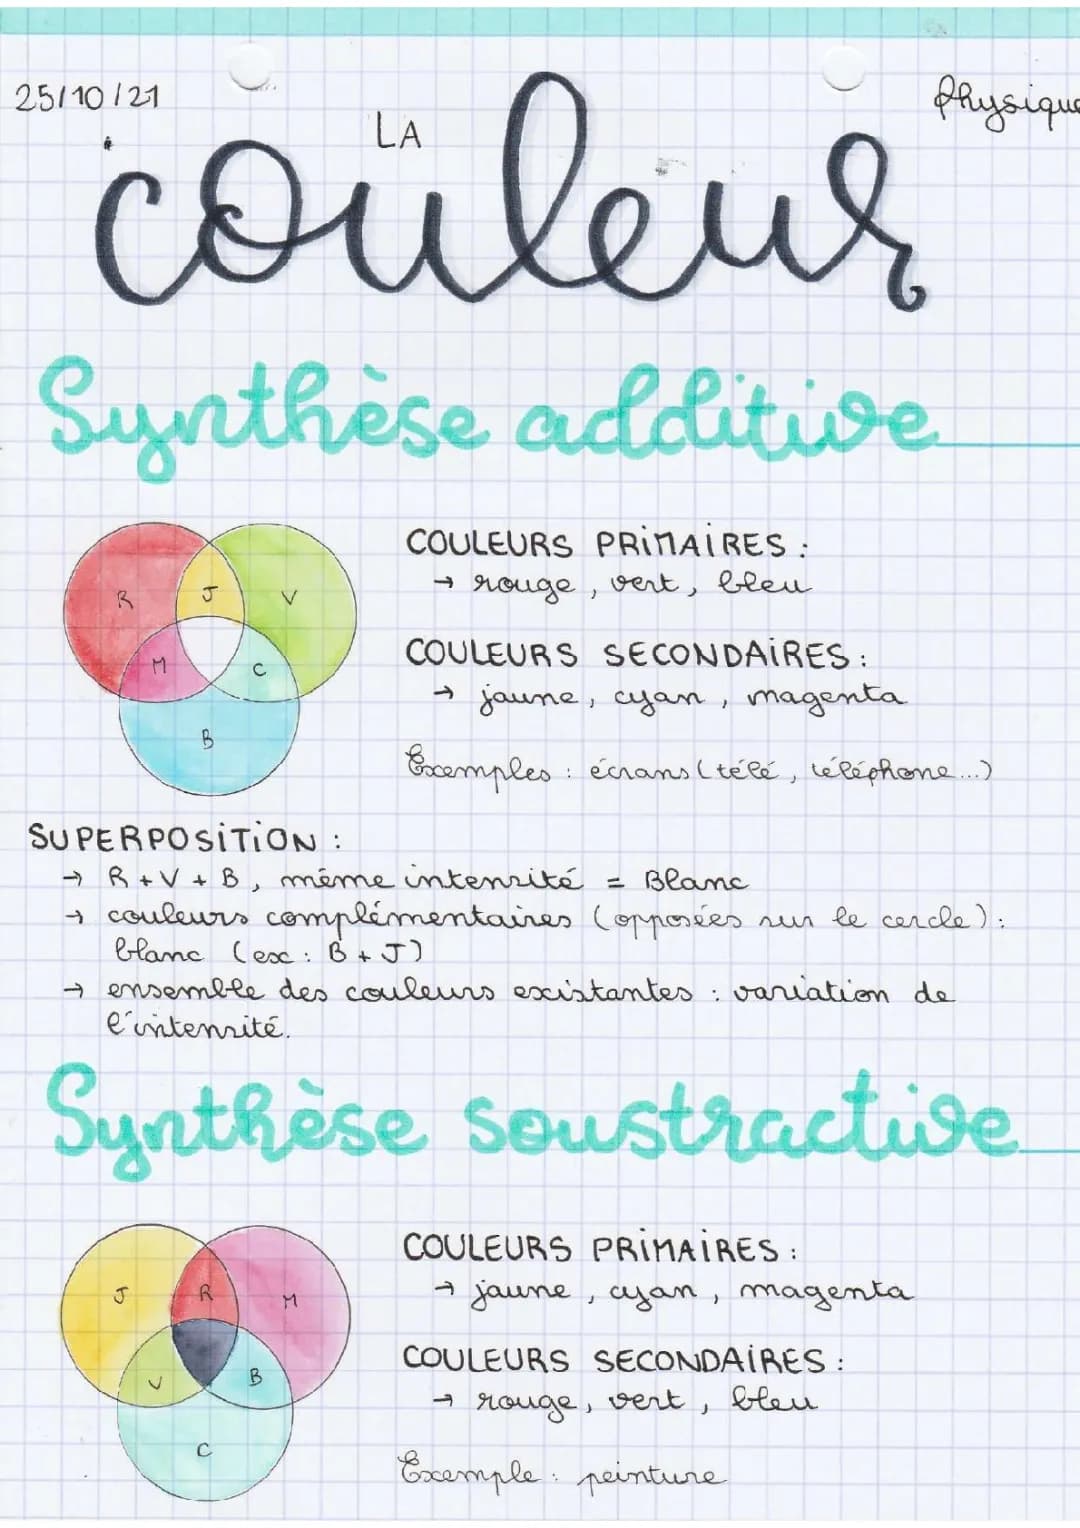 25/10/21
Physique
LA
couleur
Synthèse additive
R
J
V
M
C
B
COULEURS PRIMAIRES :
→ rouge, vert, bleu
COULEURS SECONDAIRES :
→ jaune, cyan, magenta
Exemples : écrans (télé, téléphone...)
SUPERPOSITION :
→ R + V + B, même intensité = Blanc
→ couleurs complémentaires (opposées sur le cercle) :
blanc (ex : B + J)
→ ensemble des couleurs existantes : variation de
l'intensité.
Synthèse soustractive
J
R
M
V
B
C
COULEURS PRIMAIRES :
→ jaune, cyan, magenta
COULEURS SECONDAIRES :
→ rouge, vert, bleu
Exemple : peinture